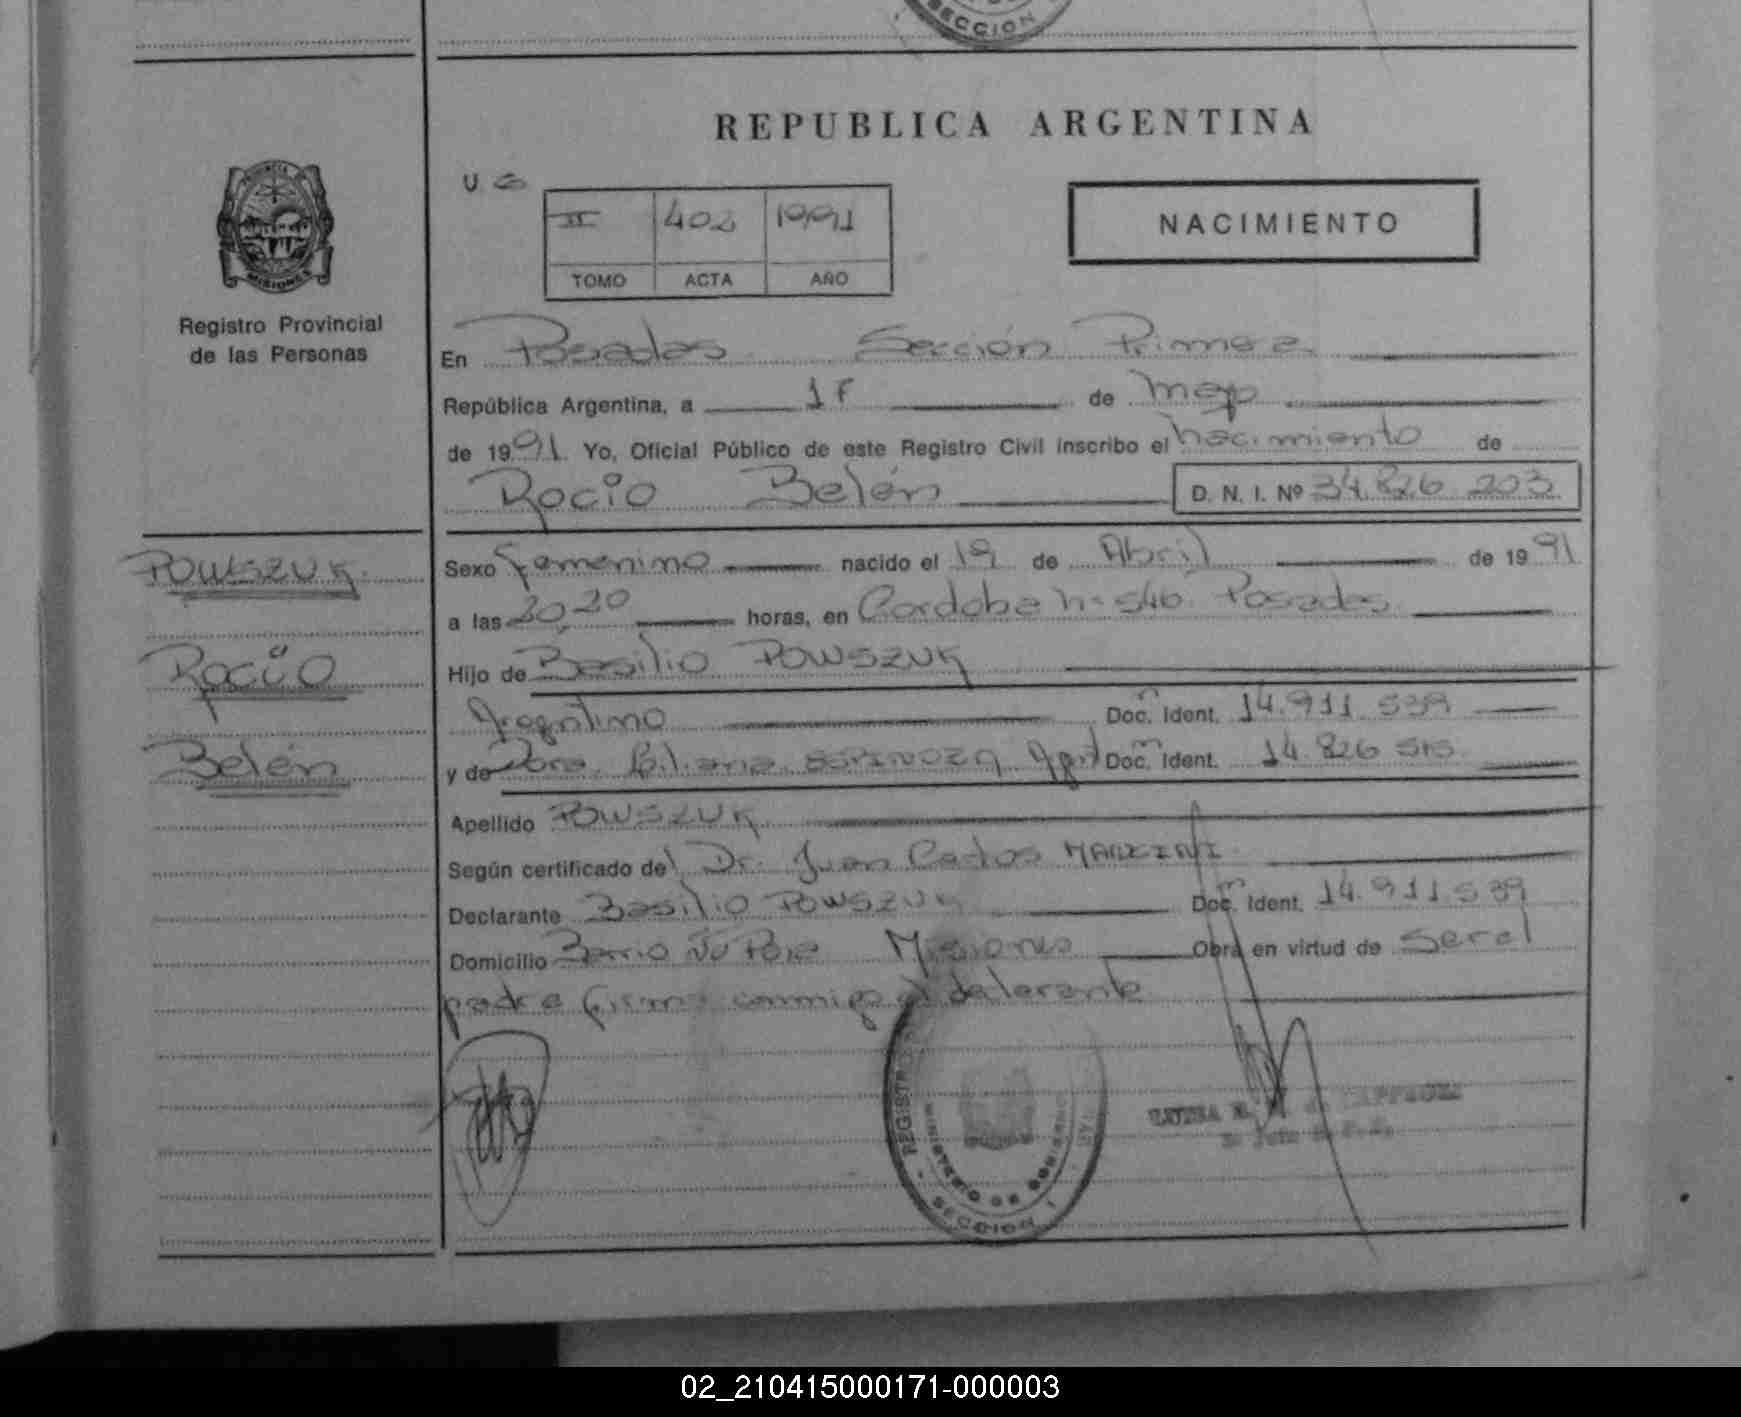 SECCION
REPUBLICA ARGENTINA
II 402 1991
TOMO ACTA AÑO
NACIMIENTO
PROVINCIA
MISIONES
Registro Provincial
de las Personas
En Posadas Sección Primera
República Argentina, a 17 de Mayo
de 1991 Yo, Oficial Público de este Registro Civil inscribo el nacimiento de
Rocío Belén D. N. I. Nº 34.826.203
POWSZUK
Rocío
Belén
Sexo femenino nacido el 19 de Abril de 1991
a las 20,20 horas, en Cordoba nº 546. Posadas
Hijo de Basilio POWSZUK
Argentino Doc. Ident. 14.911.539
y de Dora Biliana ESPINOZA Doc. Ident. 14.826.515
Apellido POWSZUK
Según certificado del Dr. Juan Carlos
Declarante Basilio POWSZUK Doc. Ident. 14.911.539
Domicilio Barrio Misiones Obra en virtud de Ser el
padre firma conmigo el declarante
MINISTERIO DE GOBIERNO
SECCION 1
LUISA
02_210415000171-000003